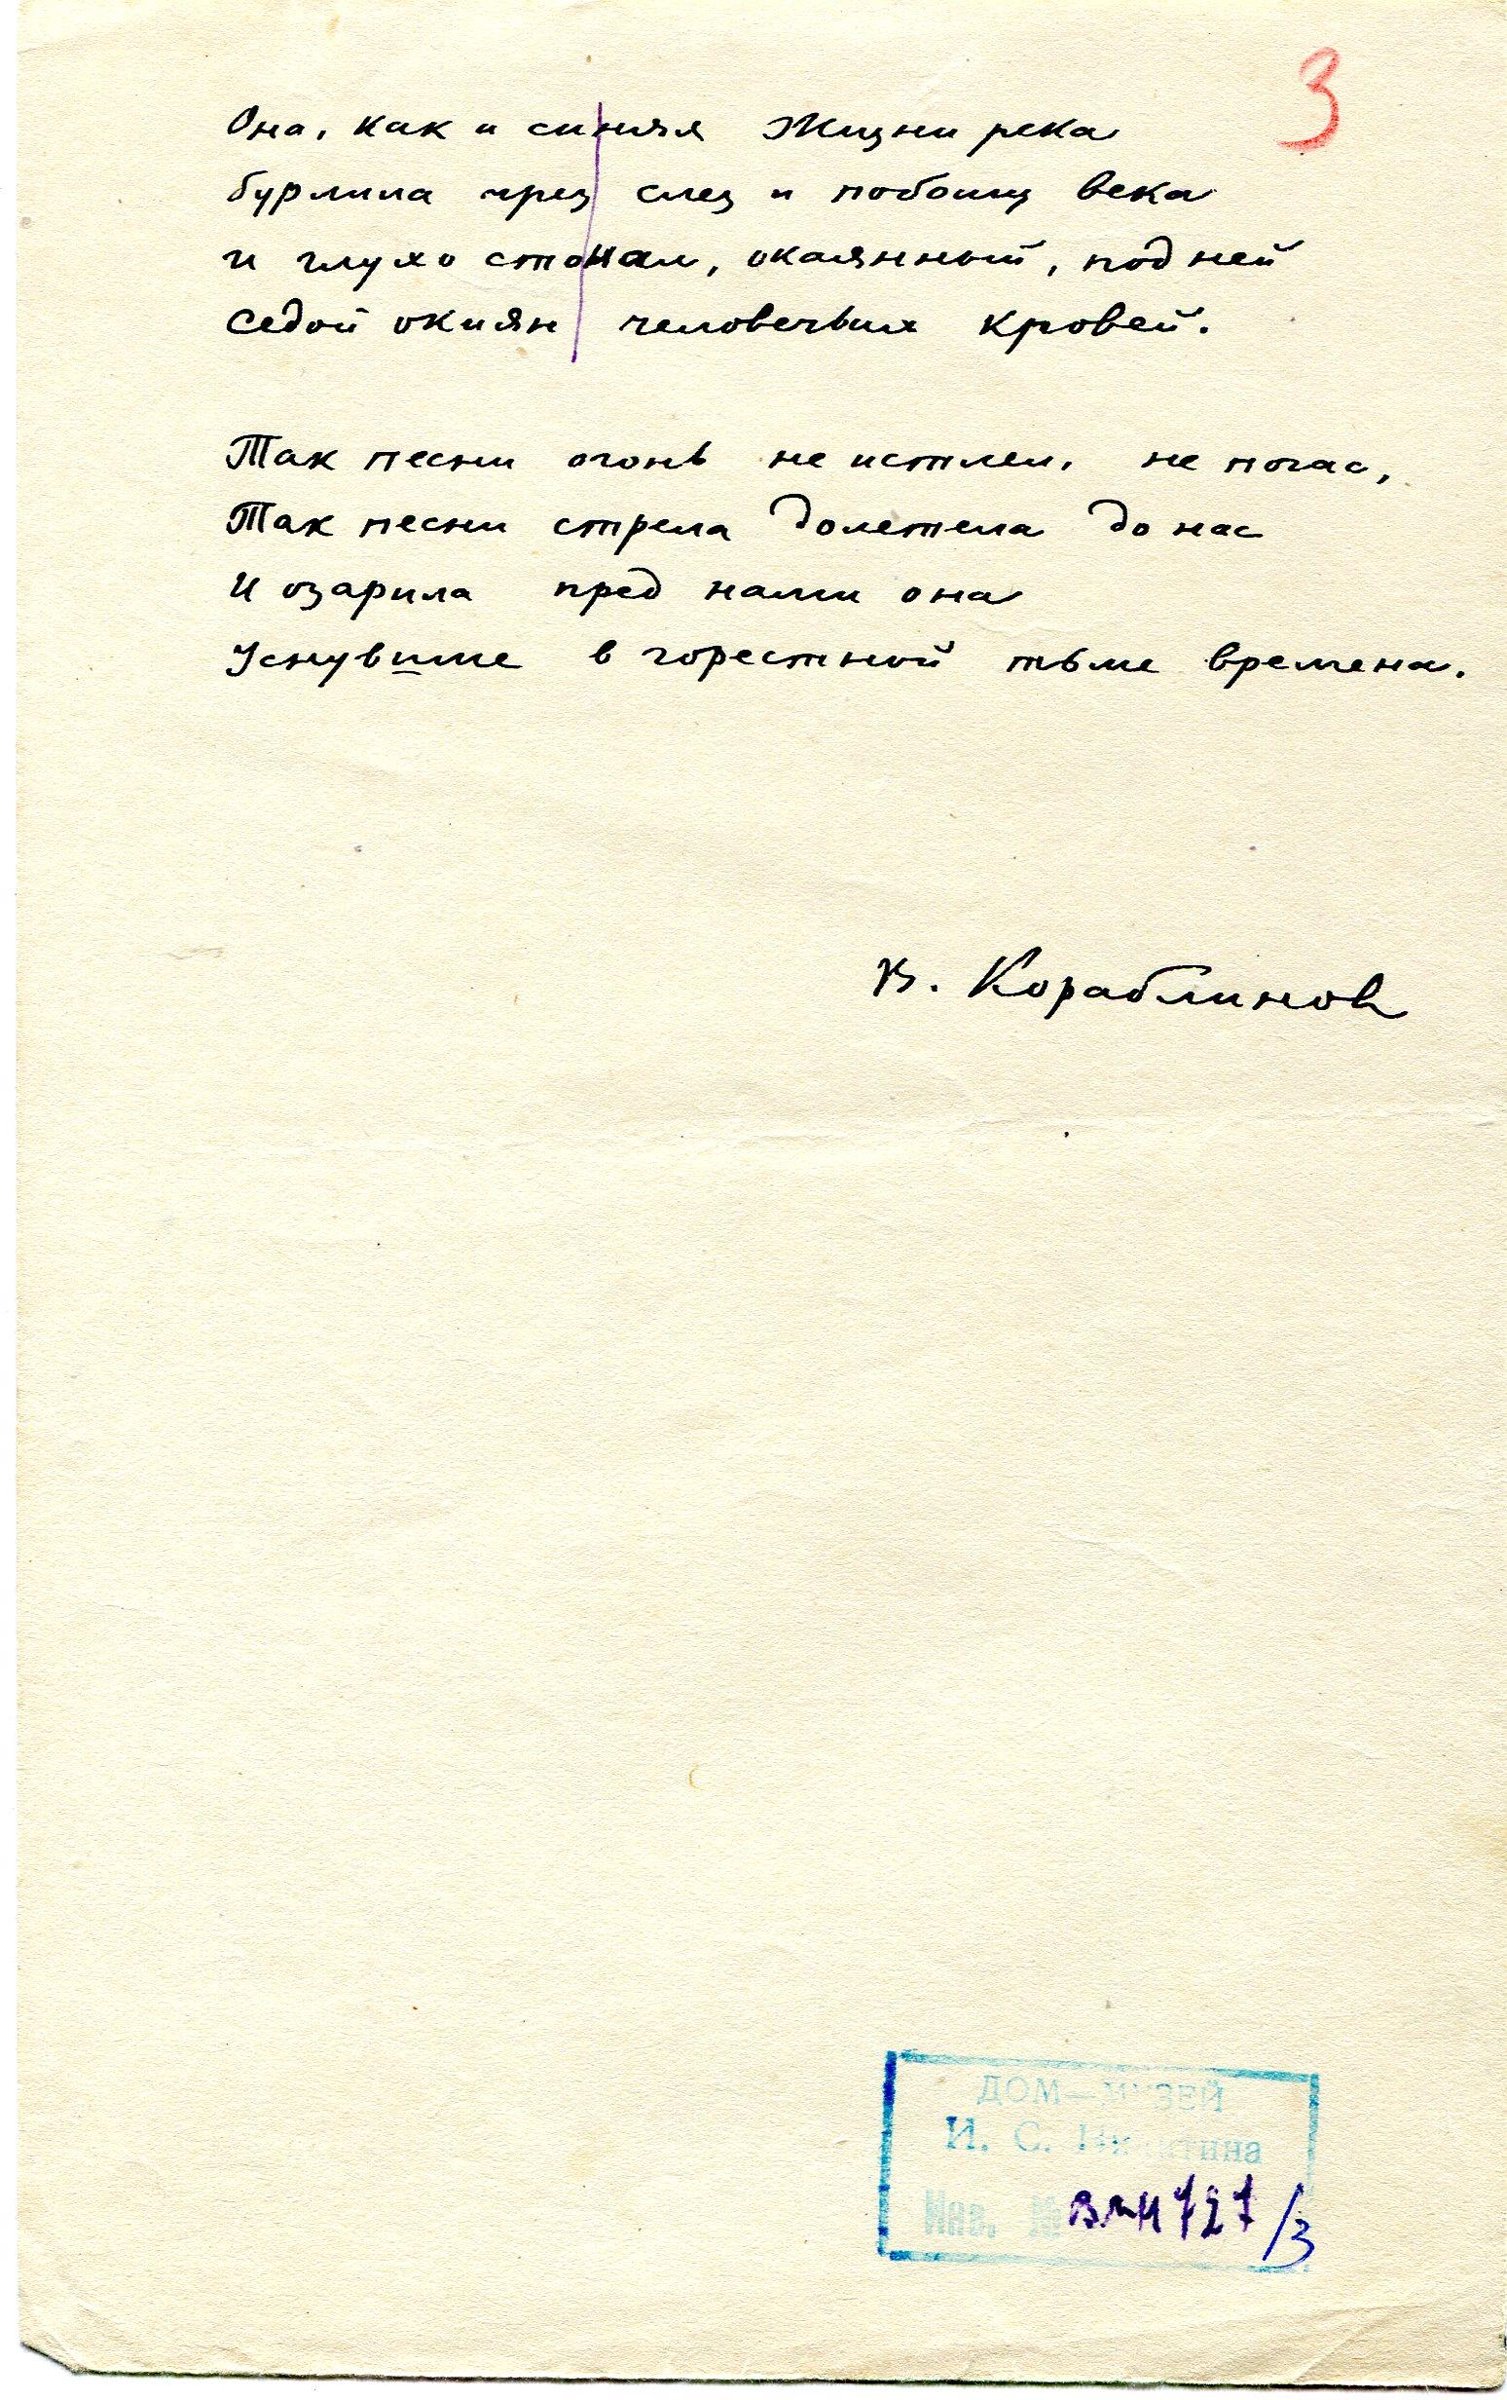 3
Она, как и синяя Жизни река
бурлила чрез слез и побоищ века
и глухо стонал, окаянный, под ней
седой окиян человечьих кровей.
Так песни огонь не истлел, не погас,
Так песни стрела долетела до нас
И озарила пред нами она
Уснувшие в горестной тьме времена.
В. Кораблинов
ДОМ—МУЗЕЙ
И. С. Никитина
Инв. № 727/3